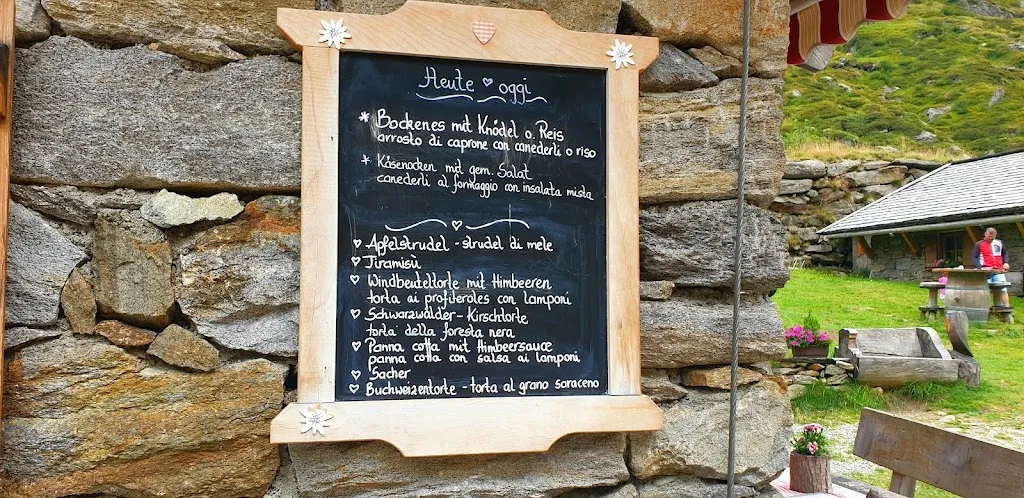 Heute oggi
Bockenes mit Knödel o. Reis
arrosto di caprone con canederli o riso
Käsenocken mit gem. Salat
canederli al formaggio con insalata mista
Apfelstrudel - strudel di mele
Tiramisù
Windbeuteltorte mit Himbeeren
torta ai profiteroles con lamponi
Schwarzwälder-Kirschtorte
torta della foresta nera
Panna cotta mit Himbeersauce
panna cotta con salsa ai lamponi
Sacher
Buchweizentorte - torta al grano saraceno